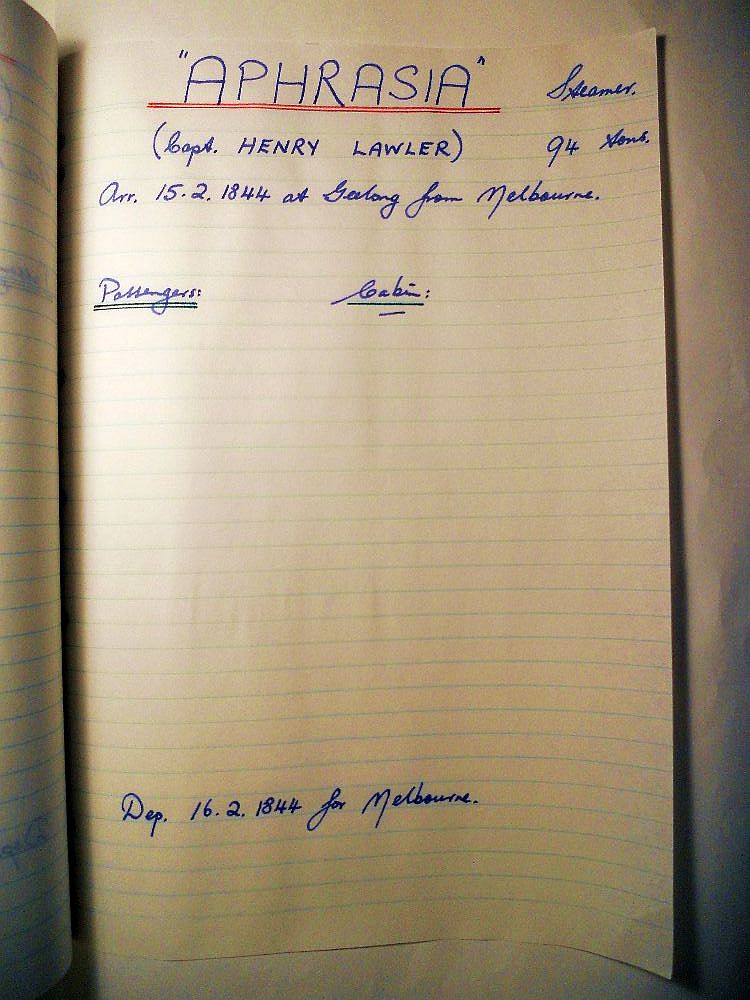 "APHRASIA" Steamer.
(Capt. HENRY LAWLER) 94 tons.
Arr. 15.2.1844 at Geelong from Melbourne.
Passengers: Cabin:
Dep. 16.2.1844 for Melbourne.